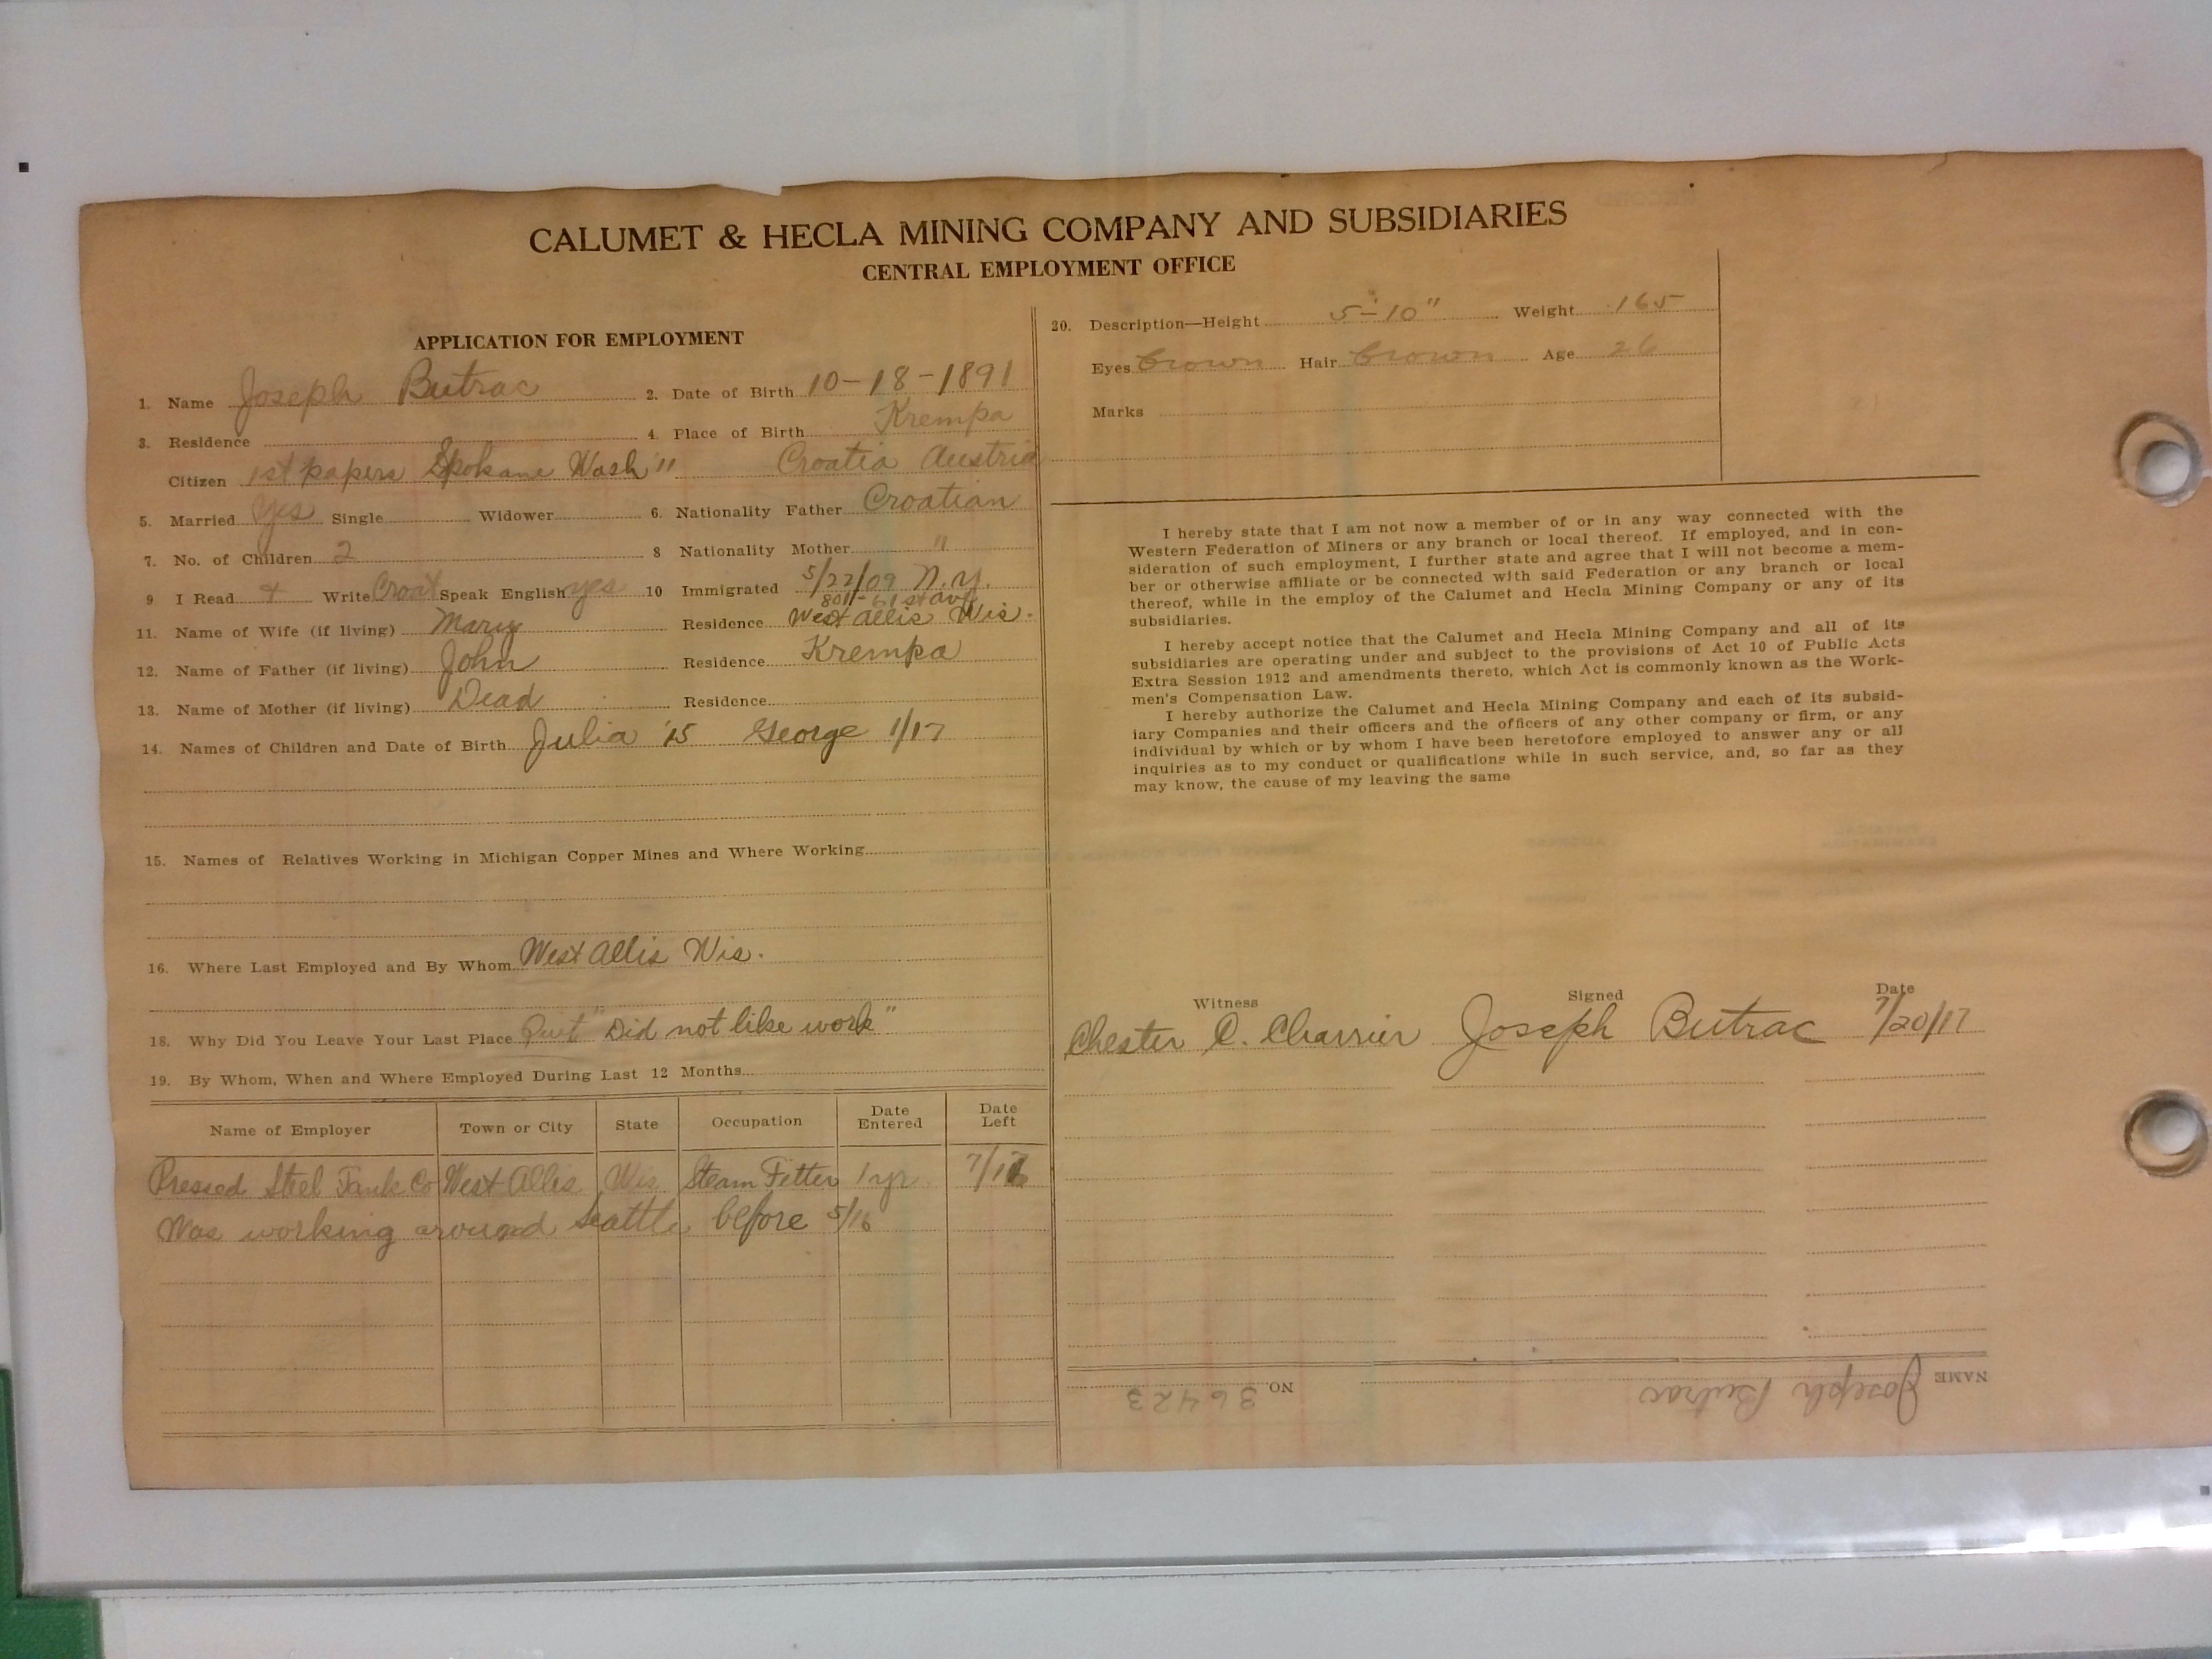 CALUMET & HECLA MINING COMPANY AND SUBSIDIARIES
CENTRAL EMPLOYMENT OFFICE
APPLICATION FOR EMPLOYMENT
1. Name Joseph Butrac 2. Date of Birth 10-18-1891
3. Residence 4. Place of Birth Krempa
Citizen 1st papers Spokane Wash '11 Croatia Austria
5. Married Yes Single Widower 6. Nationality Father Croatian
7. No. of Children 2 8 Nationality Mother "
9 I Read & Write Croat Speak English yes 10 Immigrated 5/22/09 N.Y.
801-61st ave
11. Name of Wife (if living) Mary Residence West Allis Wis.
12. Name of Father (if living) John Residence Krempa
13. Name of Mother (if living) Dead Residence
14. Names of Children and Date of Birth Julia '15 George 1/17
15. Names of Relatives Working in Michigan Copper Mines and Where Working
16. Where Last Employed and By Whom West Allis Wis.
18. Why Did You Leave Your Last Place Quit "Did not like work"
19. By Whom, When and Where Employed During Last 12 Months
Name of Employer Town or City State Occupation Date Entered Date Left
Pressed Steel Tank Co West Allis Wis. Steam Fitter 1 yr 7/17
Was working around Seattle before 5/16
20. Description—Height 5'-10" Weight 165
Eyes brown Hair brown Age 26
Marks
I hereby state that I am not now a member of or in any way connected with the
Western Federation of Miners or any branch or local thereof. If employed, and in con-
sideration of such employment, I further state and agree that I will not become a mem-
ber or otherwise affiliate or be connected with said Federation or any branch or local
thereof, while in the employ of the Calumet and Hecla Mining Company or any of its
subsidiaries.
I hereby accept notice that the Calumet and Hecla Mining Company and all of its
subsidiaries are operating under and subject to the provisions of Act 10 of Public Acts
Extra Session 1912 and amendments thereto, which Act is commonly known as the Work-
men's Compensation Law.
I hereby authorize the Calumet and Hecla Mining Company and each of its subsid-
iary Companies and their officers and the officers of any other company or firm, or any
individual by which or by whom I have been heretofore employed to answer any or all
inquiries as to my conduct or qualifications while in such service, and, so far as they
may know, the cause of my leaving the same
Witness Signed Date
Chester C. Charrier Joseph Butrac 7/20/17
NAME Joseph Butrac NO. 36423